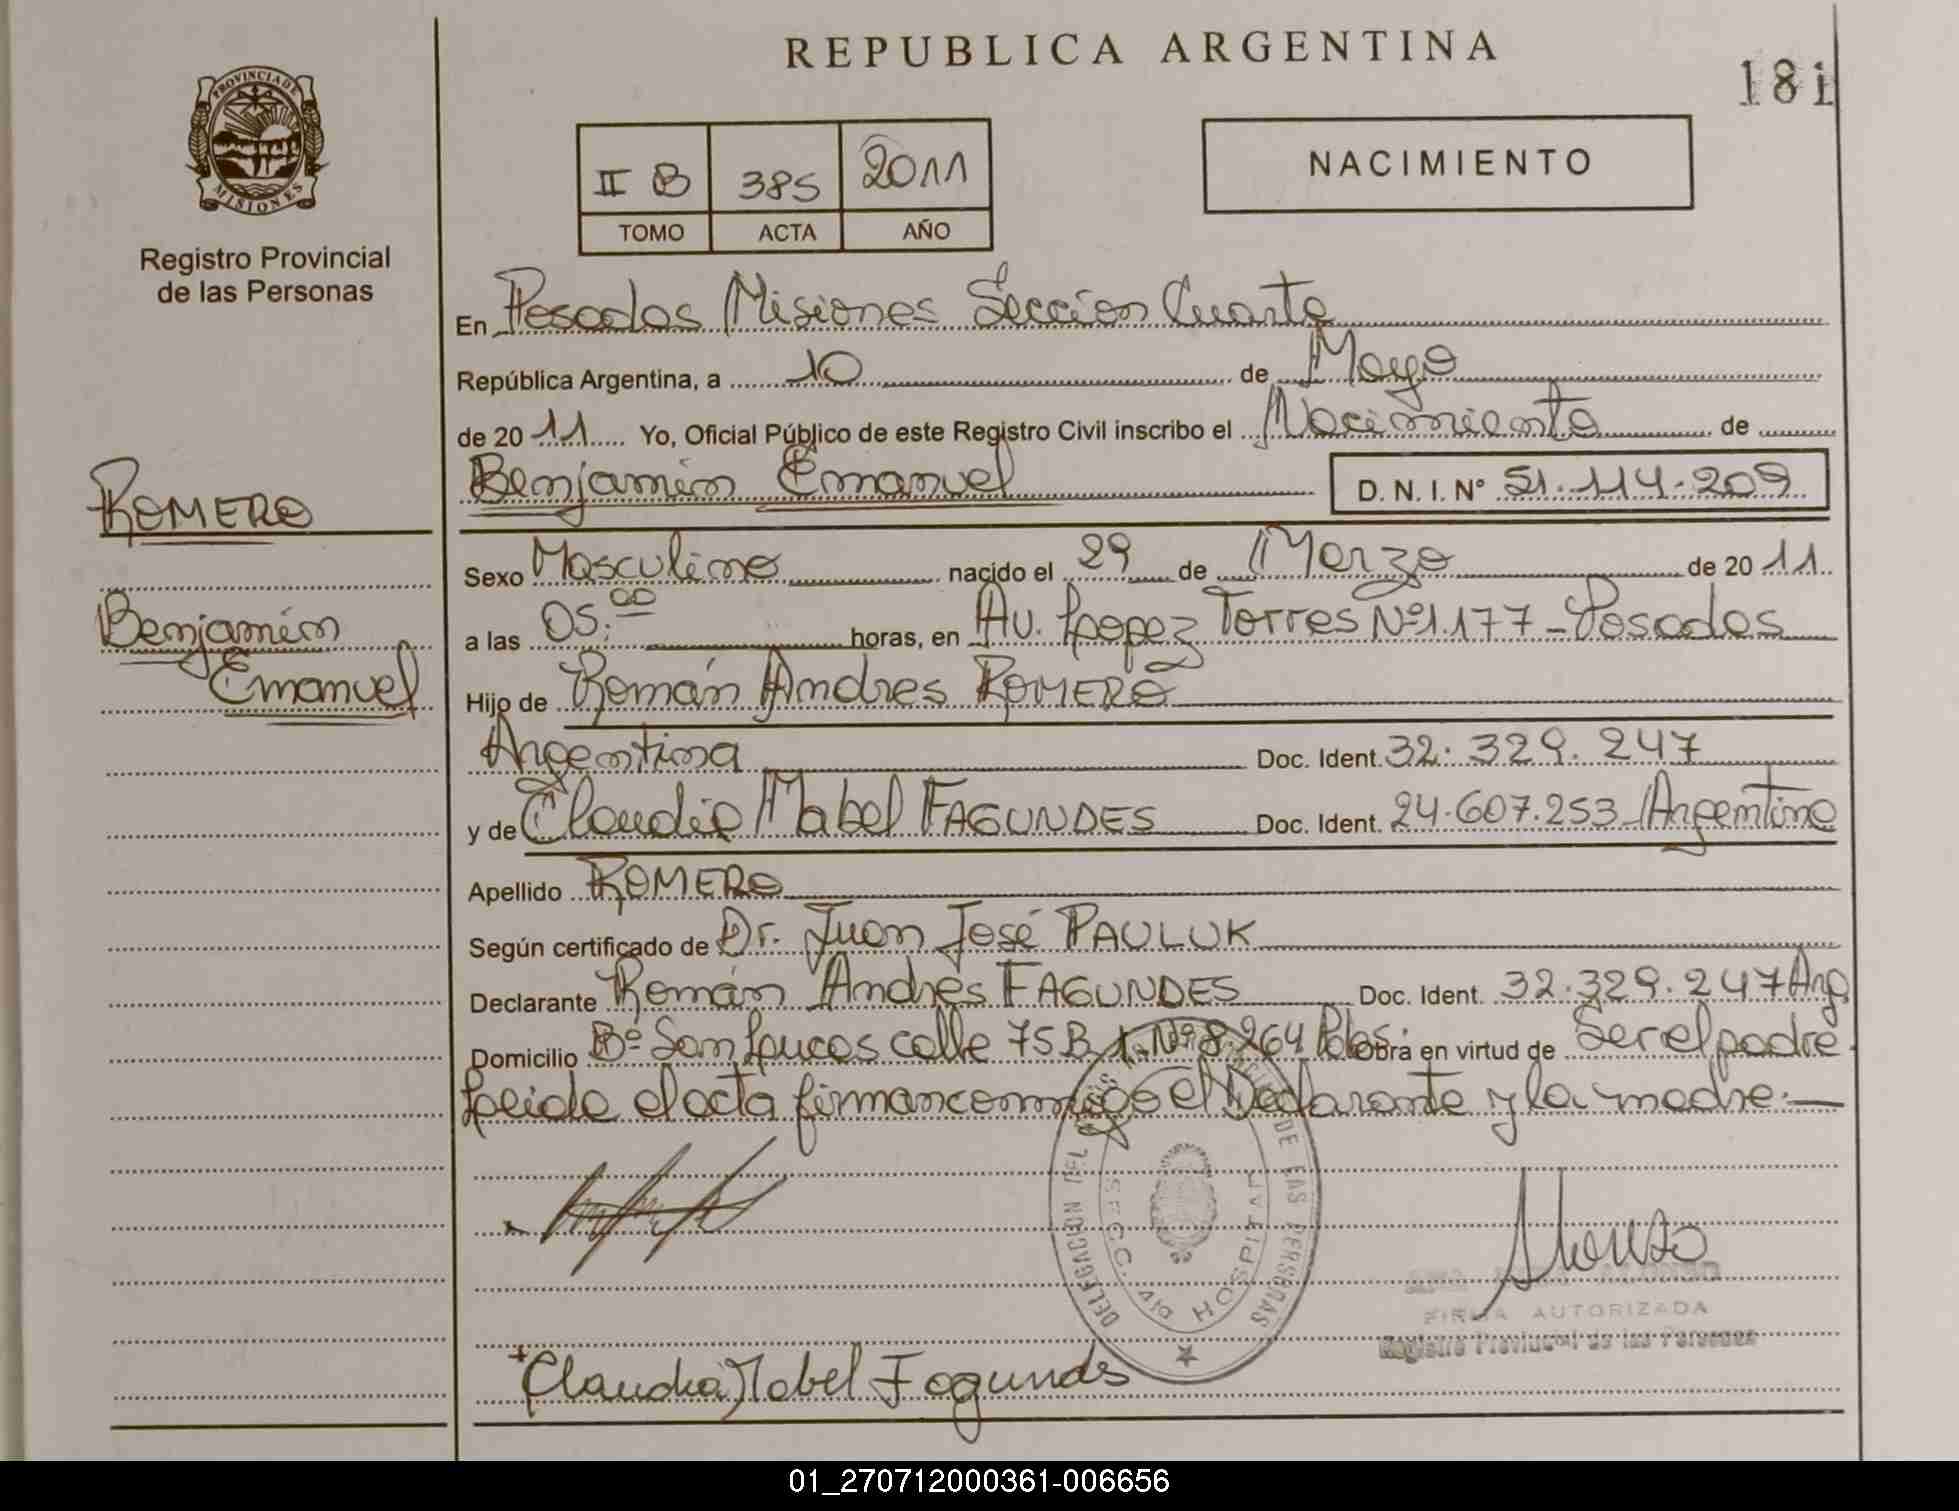 REPUBLICA ARGENTINA
181
PROVINCIA DE
MISIONES
Registro Provincial
de las Personas
II B 385 2011
TOMO ACTA AÑO
NACIMIENTO
En Posadas Misiones Sección Cuarta
República Argentina, a 10 de Mayo
de 2011 Yo, Oficial Público de este Registro Civil inscribo el Nacimiento de
Benjamín Emanuel D. N. I. Nº 51.114.209
ROMERO
Benjamín
Emanuel
Sexo Masculino nacido el 29 de Marzo de 2011
a las 05:00 horas, en Av. Lopez Torres Nº1.177 - Posadas
Hijo de Román Andres ROMERO
Argentina Doc. Ident. 32.329.247
y de Claudia Mabel FAGUNDES Doc. Ident. 24.607.253 Argentina
Apellido ROMERO
Según certificado de Dr. Juan José PAULUK
Declarante Román Andrés FAGUNDES Doc. Ident. 32.329.247 Arg
Domicilio Bº San Lucas calle 75B Nº 8.264 Obra en virtud de Ser el padre.
Leída el acta firman conmigo el Declarante y la madre.-
DELEGACION DEL DE LAS PERSONAS
SECC. 4ta HOSPITAL
FIRMA AUTORIZADA
Registro Provincial de las Personas
Claudia Mabel Fagundes
01_270712000361-006656